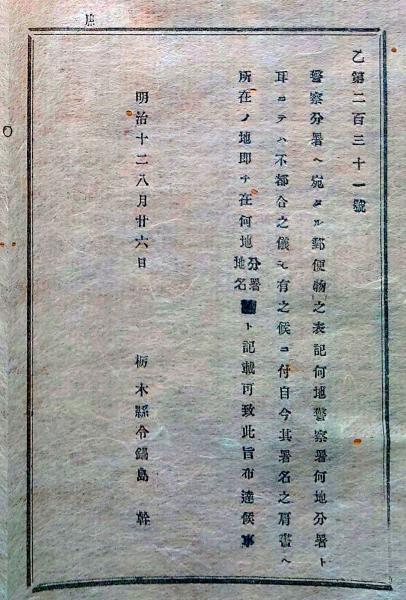 庶
乙第二百三十一號
警察分署ヘ宛タル郵便物之表記何地警察署何地分署ト
耳ニテハ不都合之儀モ有之候ニ付自今其署名之肩書ヘ
所在ノ地即チ在何地分署地名ト記載可致此旨布達候事
明治十二八月廿六日
栃木縣令鍋島幹